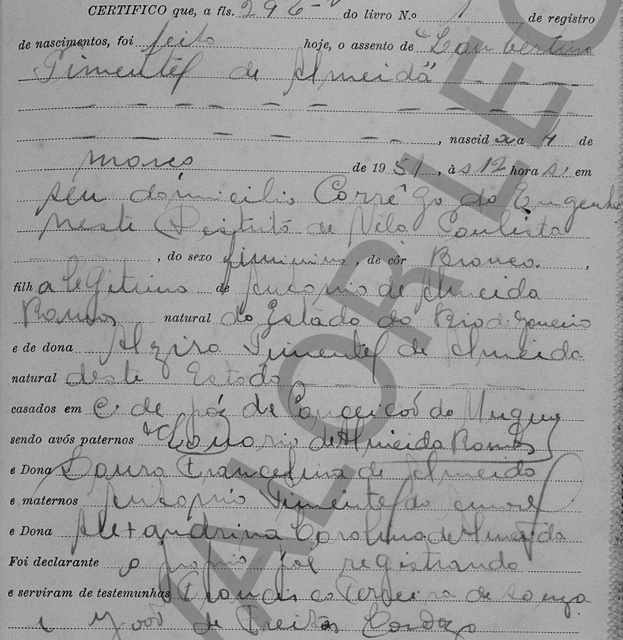 CERTIFICO que, a fls. 296-v do livro N.º 1 de registro
de nascimentos, foi feito hoje, o assento de "Laubertina
Pimentel de Almeida"
, nascida a 4 de
março de 1951, às 12 horas, em
seu domicilio Corrêgo do Engenho
neste Distrito de Vila Paulista
, do sexo feminino, de côr Branca,
filha legitima de Antonio de Almeida
Ramos natural do Estado do Rio de Janeiro
e de dona Alzira Pimentel de Almeida
natural deste Estado
casados em C. de paz de Conceição do Muqui
sendo avós paternos de Almeida Ramos
e Dona Laura Francelina de Almeida
e maternos Antonio Pimentel do
e Dona Alexandrina Carolina de Almeida
Foi declarante o proprio pae registrando
e serviram de testemunhas Francisco de Souza
e João de Freitas
VALOR LEG